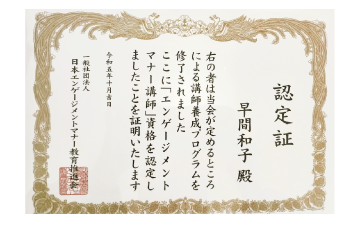 認定証
早間和子 殿
右の者は当会が定めるところ
による講師養成プログラムを
修了されました
ここに「エンゲージメント
マナー講師」資格を認定し
ましたことを証明いたします
令和五年十月吉日
一般社団法人
日本エンゲージメントマナー教育推進会